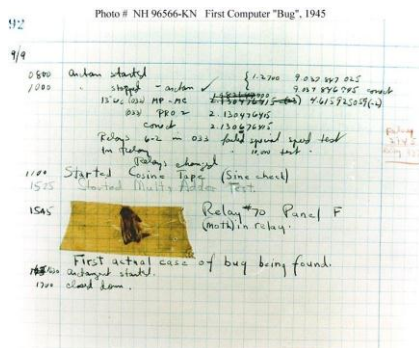 Photo # NH 96566-KN First Computer "Bug", 1945
92
9/9
0800 antan started
1000 " stopped - antan ✓ { 1.2700 9.037 847 025
9.037 846 995 correct
13"uc (032) MP - MC 2.130476415 4.615925059(-2)
(033) PRO 2 2.130476415
correct 2.130676415
Relays 6-2 in 033 failed special speed test
in Relay " 10.000 test.
Relays changed
1100 Started Cosine Tape (Sine check)
1525 Started Multy Adder Test.
1545 Relay #70 Panel F
(moth) in relay.
First actual case of bug being found.
antangent started.
1700 closed down.